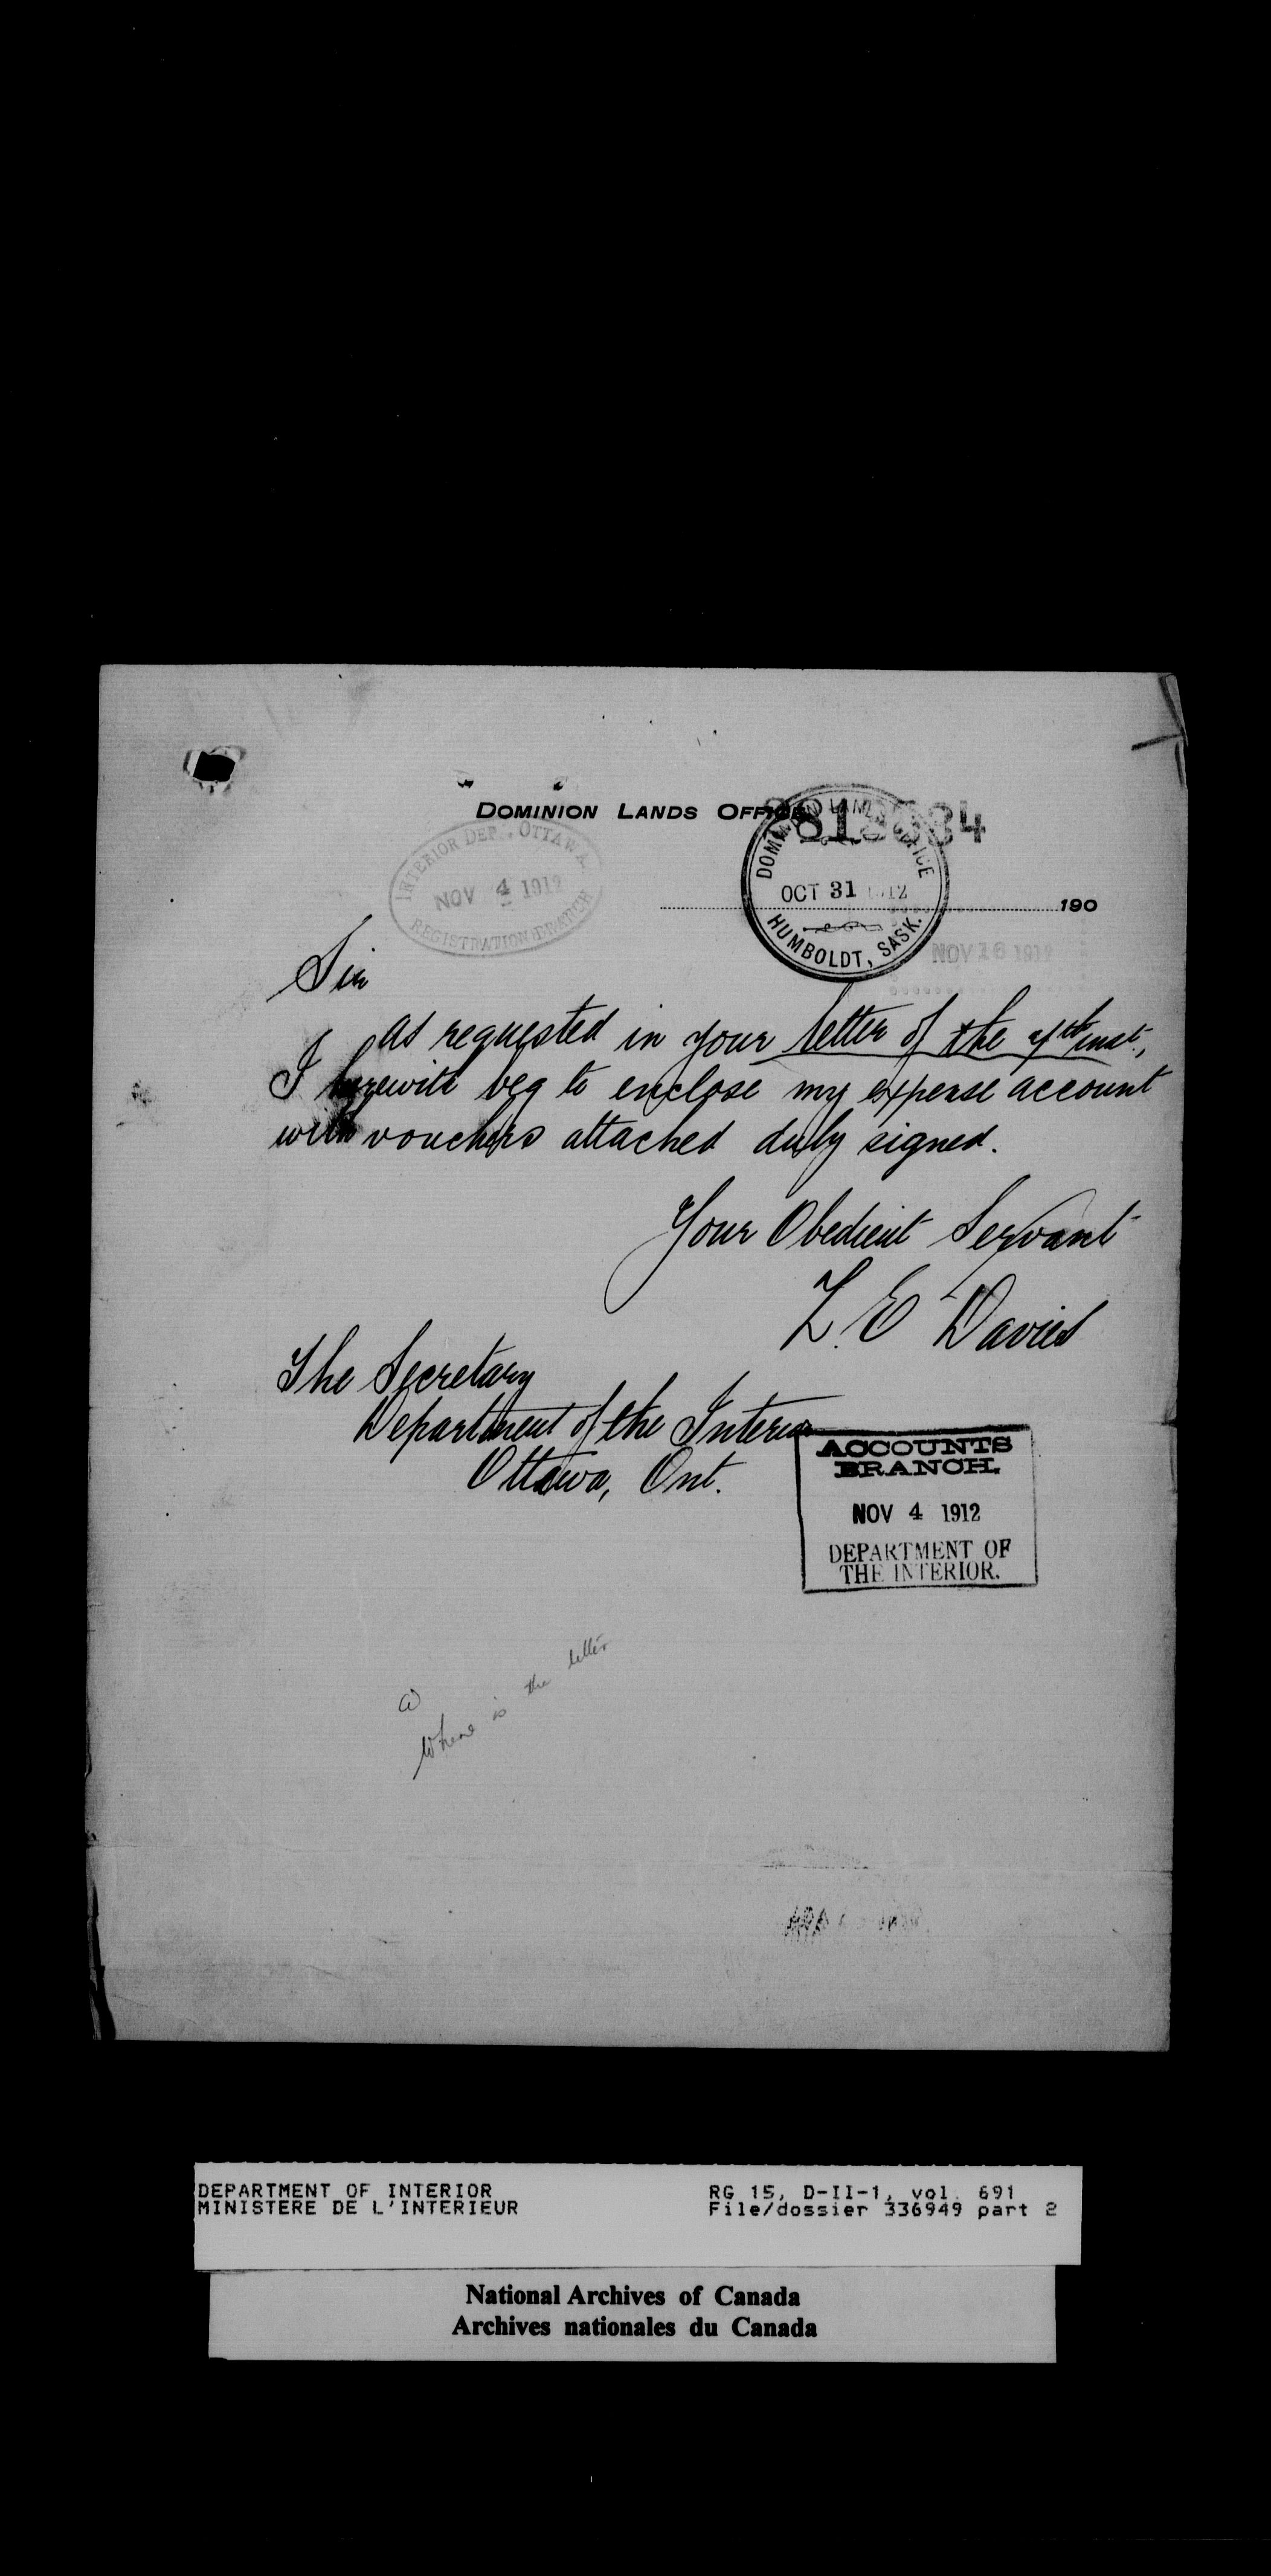 DOMINION LANDS OFFICE
INTERIOR DEPT. OTTAWA.
NOV 4 1912
REGISTRATION BRANCH
DOMINION LANDS OFFICE
OCT 31 1912
HUMBOLDT, SASK.
190
NOV 16 1912
Sir
As requested in your letter of the inst.,
I herewith beg to enclose my expense account
with vouchers attached duly signed.
Your Obedient Servant
L. E Davies
The Secretary
Department of the Interior
Ottawa, Ont.
ACCOUNTS
BRANCH.
NOV 4 1912
DEPARTMENT OF
THE INTERIOR.
Where is the letter
DEPARTMENT OF INTERIOR RG 15, D-II-1, vol. 691
MINISTERE DE L'INTERIEUR File/dossier 336949 part 2
National Archives of Canada
Archives nationales du Canada